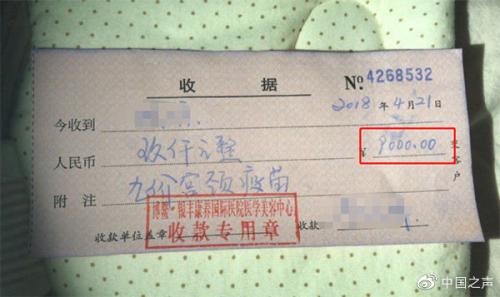 收据 No 4268532
2018年4月21日
今收到
人民币 玖仟元整 ¥ 9000.00
附注 九价宫颈疫苗
博鳌银丰康养国际医院医学美容中心
收款专用章
收款单位盖章 收款
@中国之声